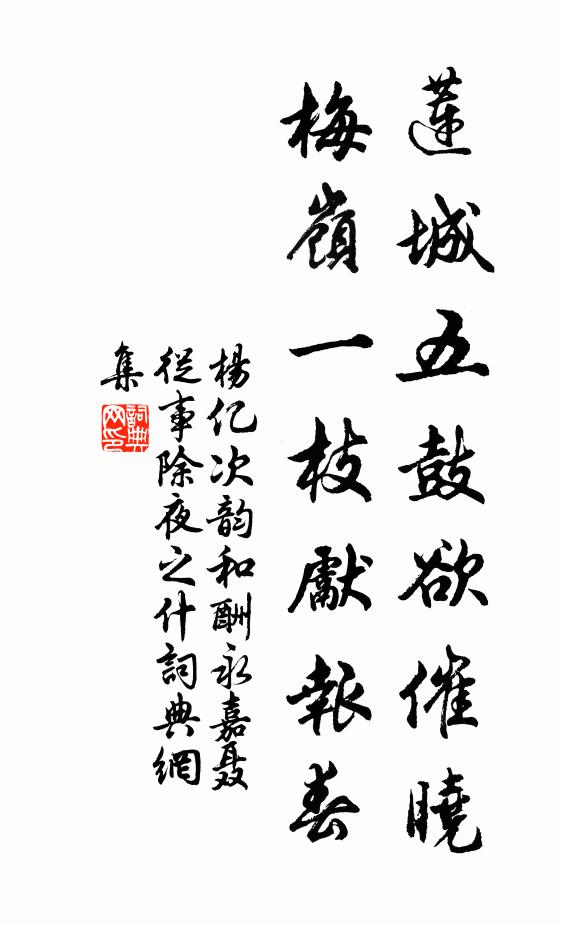 蓮城五鼓欲催曉
梅嶺一枝獻報春
楊亿次韵和酬永嘉聂
從事除夜之什詞典網
集
詞典
网印